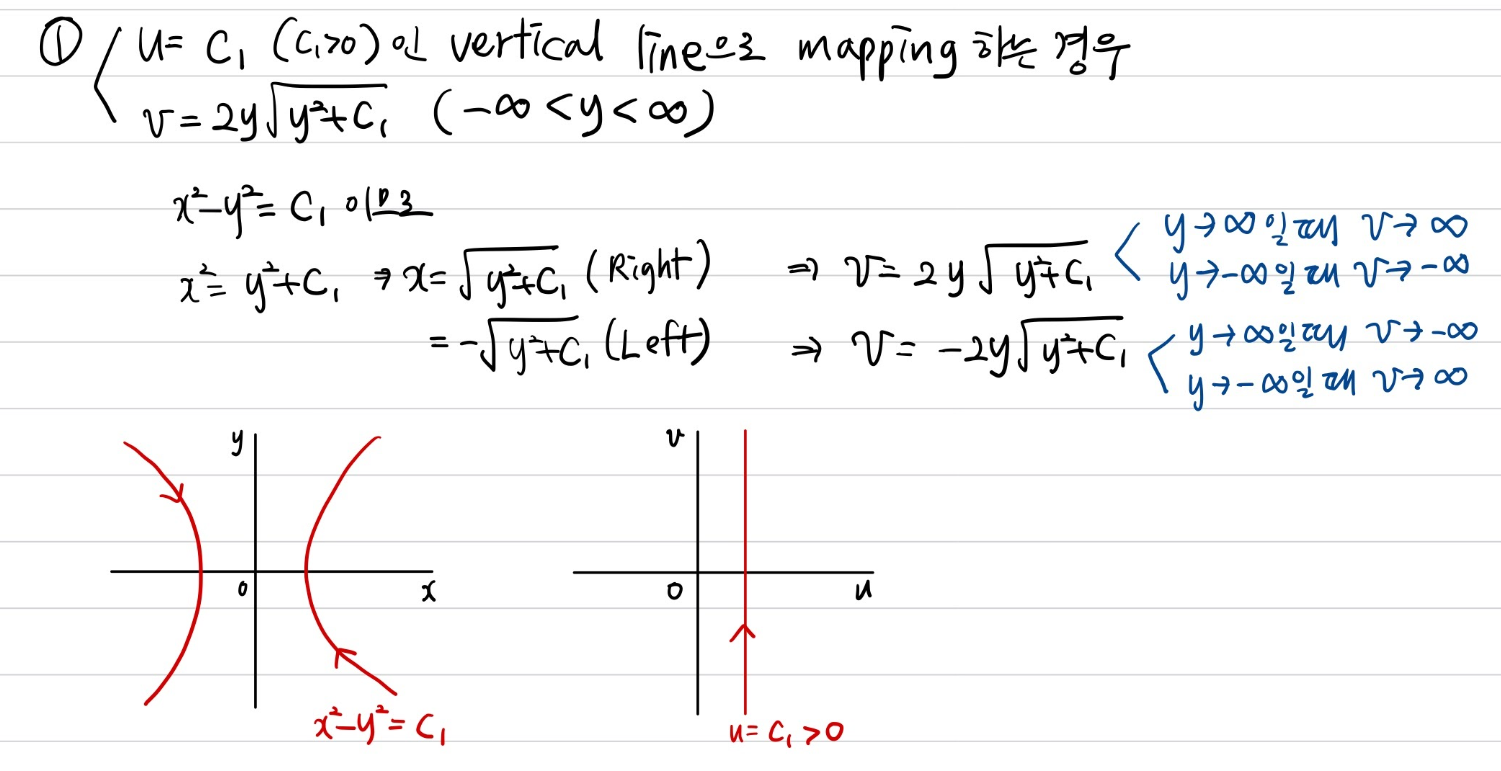 ① u = C₁ (C₁>0) 인 vertical line으로 mapping 하는 경우
v = 2y√(y²+C₁) (-∞ < y < ∞)
x²-y² = C₁ 이므로
x² = y²+C₁ ⇒ x = √(y²+C₁) (Right) ⇒ v = 2y√(y²+C₁) y→∞일 때 v→∞
y→-∞일 때 v→-∞
= -√(y²+C₁) (Left) ⇒ v = -2y√(y²+C₁) y→∞일 때 v→-∞
y→-∞일 때 v→∞
y v
0 x 0 u
x²-y² = C₁ u = C₁ > 0